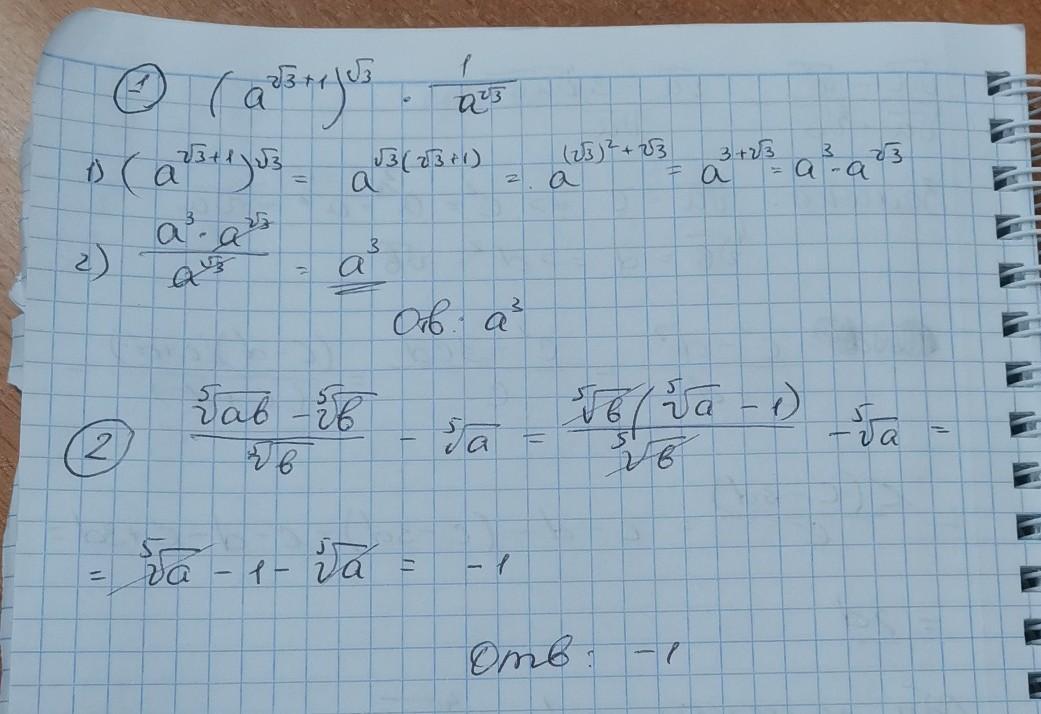 ① (a^(√3+1))^√3 · 1/a^√3
1) (a^(√3+1))^√3 = a^(√3(√3+1)) = a^((√3)²+√3) = a^(3+√3) = a³·a^√3
2) (a³·a^√3)/a^√3 = a³
Отв: a³
② (⁵√ab − ⁵√в)/⁵√в − ⁵√a = ⁵√в(⁵√a − 1)/⁵√в − ⁵√a =
= ⁵√a − 1 − ⁵√a = −1
Отв: −1